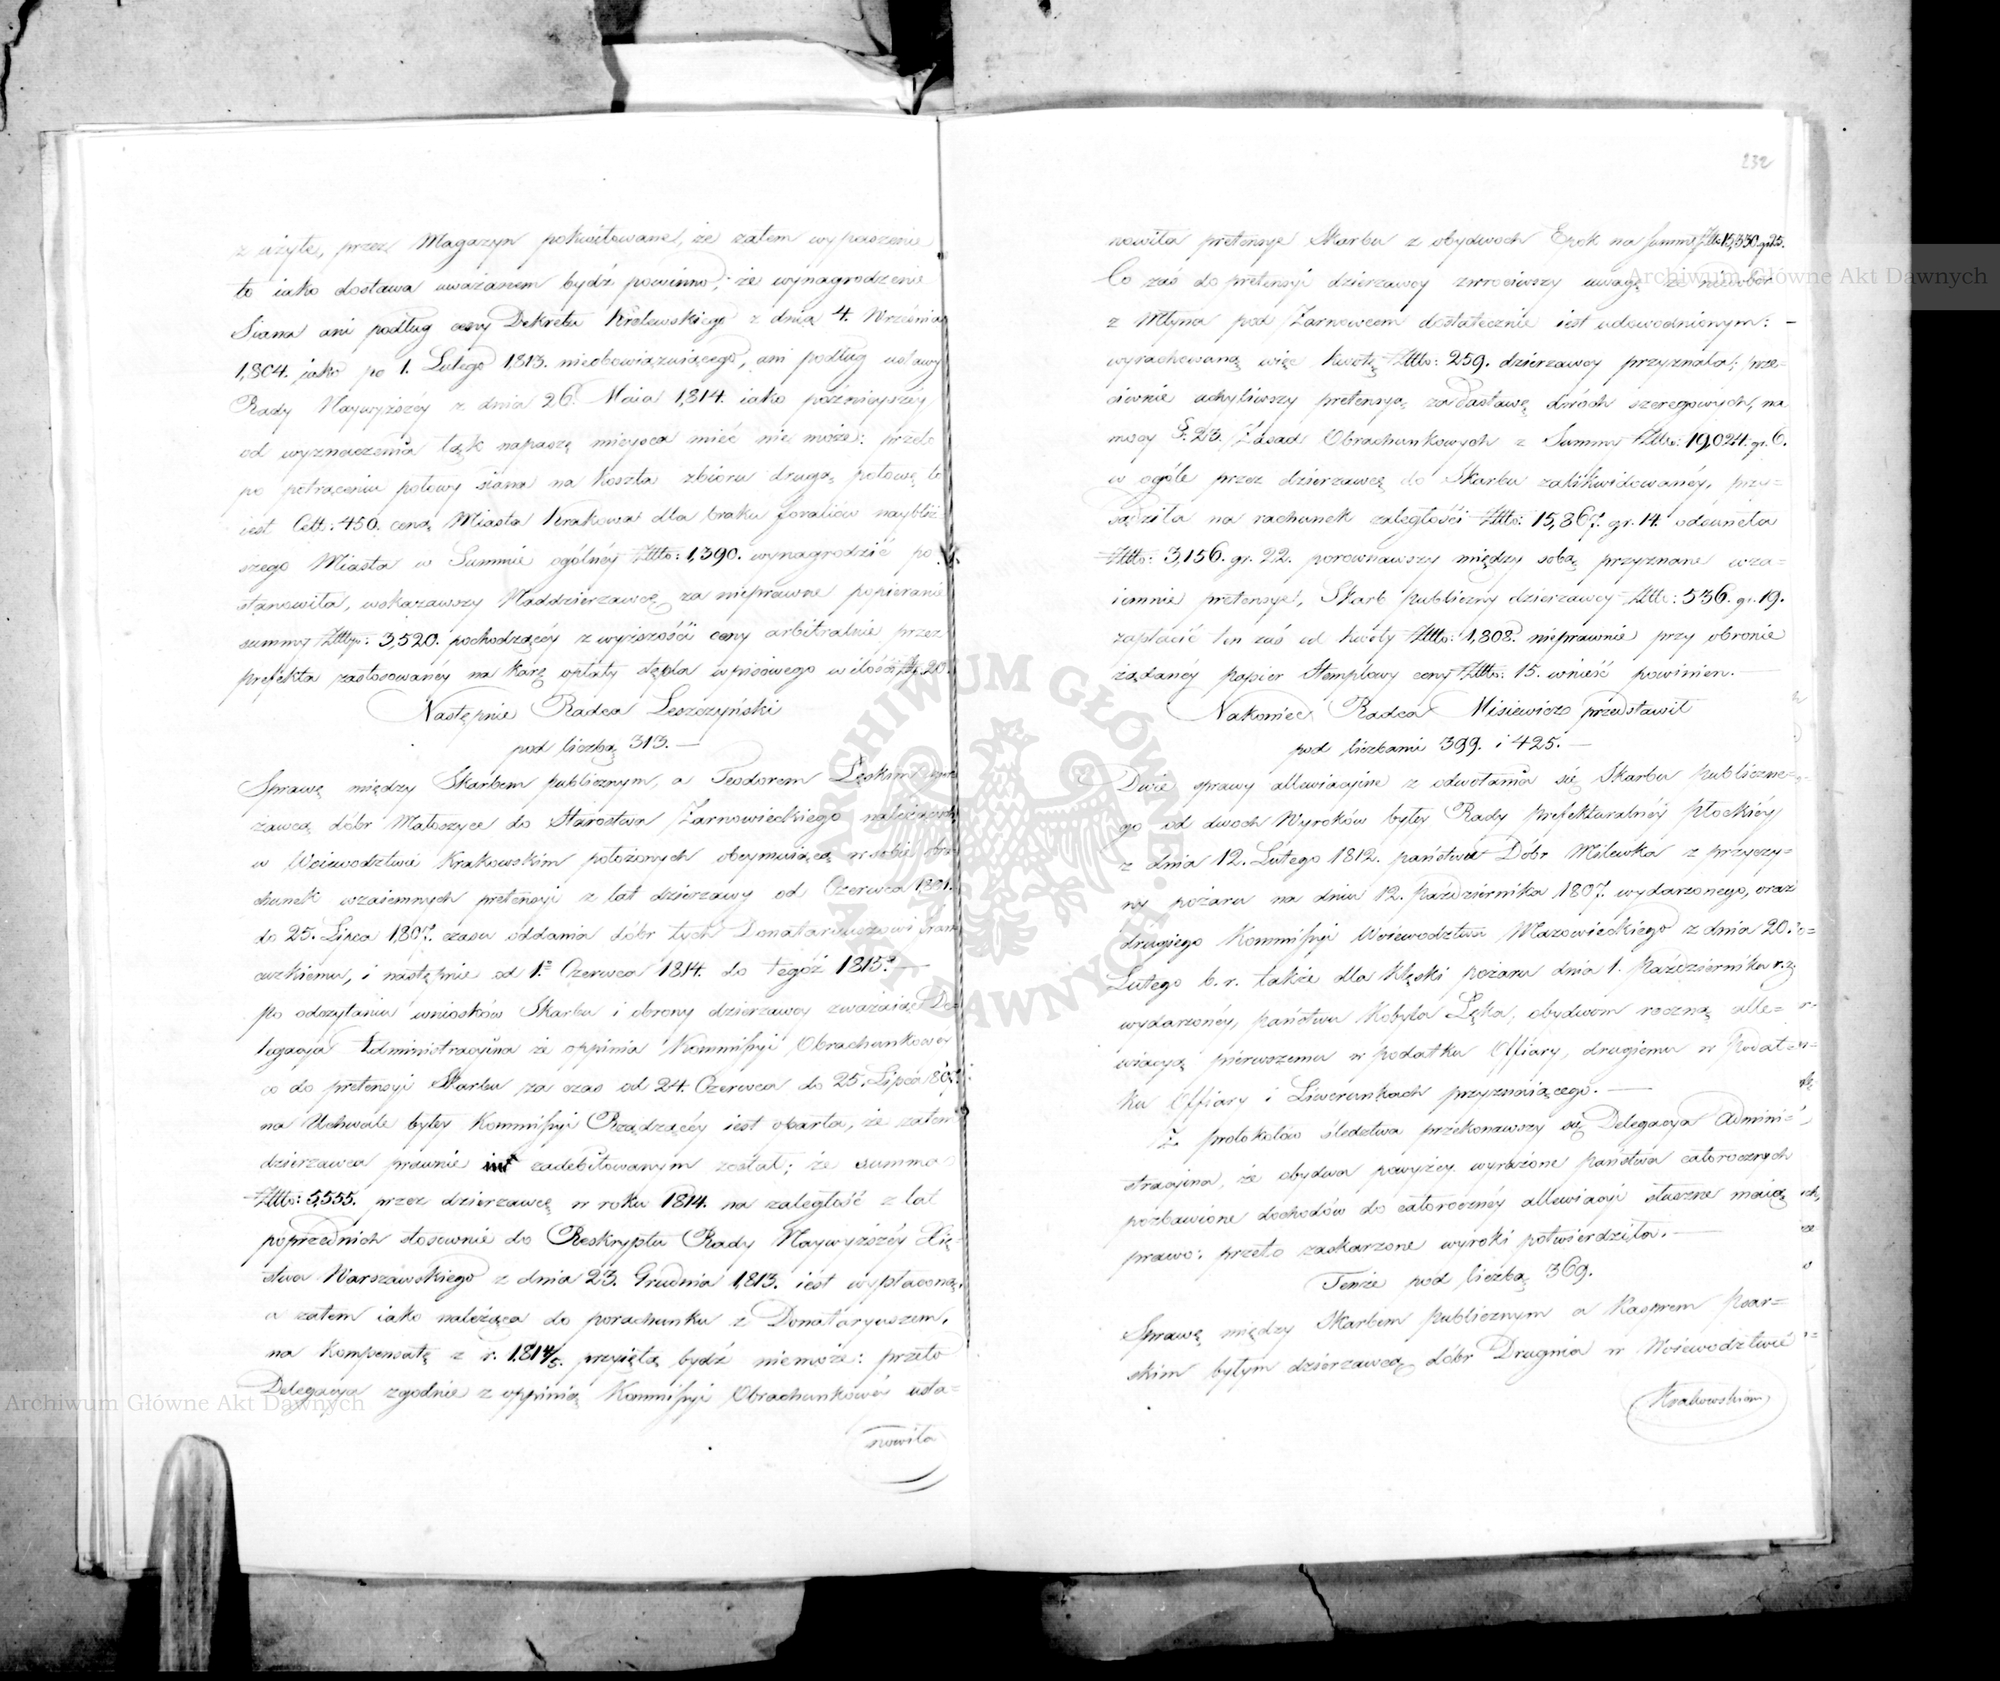 z użyte, przez Magazyn pokwitowane, że zatem wypaszenie
to iako dostawa uważanem bydź powinno; że wynagrodzenie
Siana ani podług ceny Dekretu Królewskiego z dnia 4. Września
1,804. iako po 1. Lutego 1,813. nieobowiązuiącego, ani podług ustawy
Rady Naywyższéy z dnia 26. Maia 1,814. iako późnieyszéy
od wyznaczenia łąk napaszę mieysca mieć nie może: przeto
po potrąceniu połowy siana na koszta zbioru drugą połowę to
iest Cett: 450. ceną Miasta Krakowa dla braku foraliów naybliż
szego Miasta w Summie ogólnéy Złtto: 1,390. wynagrodzić po
stanowiła, wskazawszy Naddzierzawcę za nieprawne popieranie
summy Złtt: 3,520. pochodzącéy z wyższości ceny arbitralnie przez
prefekta zastosowanéy na karę opłaty stępla wpisowego w ilości 20.
Następnie Radca Leszczyński
pod liczbą 313. —
Sprawę między Skarbem publicznym, a Teodorem Łęskim
żawcą dóbr Małoszyce do Starostwa Żarnowieckiego należących
w Woiewodztwie Krakowskim położonych obeymuiącą w sobie obra
chunek wzaiemnych pretensyi z lat dzierzawy od Czerwca 1,801.
do 25. Lipca 1,807. czasu oddania dóbr tych Donataryuszowi Fran
cuzkiemu, i następnie od 1. Czerwca 1,814. do tegóż 1815. —
Po odczytaniu wniosków Skarbu i obrony dzierzawcy zważaiąc De
legacya Administracyina że oppinia Kommissyi Obrachunkowéy
co do pretensyi Skarbu za czas od 24. Czerwca do 25. Lipca 1807.
na Uchwale byłey Kommissyi Rządzącéy iest oparta, że zatem
dzierzawca prawnie zadebitowanym został; że summa
Złtto: 5,555. przez dzierzawcę w roku 1814. na zaległość z lat
poprzednich stosownie do Reskryptu Rady Naywyższéy Xię-
stwa Warszawskiego z dnia 23. Grudnia 1,813. iest wypłaconą,
a zatem iako należąca do porachunku z Donataryuszem,
na kompensatę z r. 1814/5. przyiętą bydź niemoże: przeto
Delegacya zgodnie z oppinią Kommissyi Obrachunkowéy usta-
nowiła
232
nowiła pretensye Skarbu z obydwoch Epok na summę Złtto 15,330. gr 25.
Co zaś do pretensyi dzierzawcy zwrociwszy uwagę że niewbor
z Młyna pod Żarnowcem dostatecznie iest udowodnionym: —
wyrachowaną więc kwotę Złtto: 259. dzierzawcy przyznała; prze-
ciwnie uchyliwszy pretensyą za dostawę dwóch szeregowych, na
mocy §. 23. Zasad Obrachunkowych z Summy Złtto: 19,024. gr. 6.
w ogóle przez dzierzawcę do Skarbu zalikwidowanéy, przy-
sądziła na rachunek zaległości Złtto: 15,867. gr. 14. odsunęła
Złtto: 3,156. gr. 22. porownawszy między sobą przyznane wza-
iemnie pretensye, Skarb publiczny dzierzawcy Złtto: 536. gr. 19.
zapłacić ten zaś od kwoty Złtto: 1,808. nieprawnie przy obronie
żądanéy papier Stemplowy ceny Złtto: 15. wnieść powinien. —
Nakoniec Radca Misiewicz przedstawił
pod liczbami 399. i 425. —
Dwie sprawy allewiacyine z odwołania się Skarbu Publiczne-
go od dwoch Wyroków byłey Rady Prefekturalnéy Płockiéy
z dnia 12. Lutego 1812. państwa Dóbr Milewka z przyczy-
ny pożaru na dniu 12. Października 1807. wydarzonego, oraz
drugiego Kommissyi Woiewodztwa Mazowieckiego z dnia 20.
Lutego b. r. także dla klęski pożaru dnia 1. Października r. z.
wydarzonéy, państwu Kobyla Łąka, obydwom roczną alle-
wiacyą pierwszemu w podatku Offiary, drugiemu w Podat-
ku Offiary i Liwerunkach przyznaiącego. —
Z protokołów śledztwa przekonawszy się Delegacya Admini-
stracyina, że obydwa powyżey wyrażone państwa całorocznych
pozbawione dochodów do całorocznéy allewiacyi słuszne maią
prawo: przeto zaskarżone wyroki potwierdziła. —
Tenże pod liczbą 369.
Sprawę między Skarbem Publicznym a Kasprem Psar-
skim byłym dzierzawcą dóbr Drugnia w Woiewodztwie
Krakowskiem
Archiwum Główne Akt Dawnych
Archiwum Główne Akt Dawnych
ARCHIWUM GŁÓWNE AKT DAWNYCH